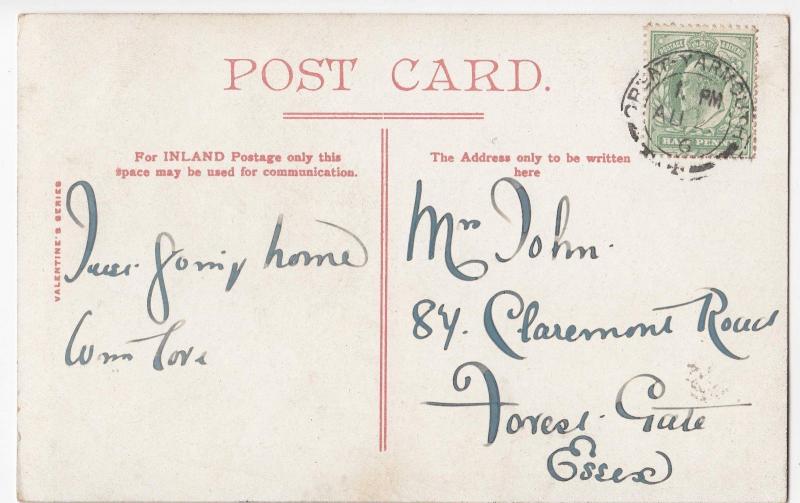 POST CARD.
For INLAND Postage only this
space may be used for communication.
The Address only to be written
here
VALENTINE'S SERIES
going home
love
Mrs John.
84. Claremont Road
Forest Gate
Essex
POSTAGE & REVENUE
HALFPENNY
GREAT-YARMOUTH
1 PM
AU
6